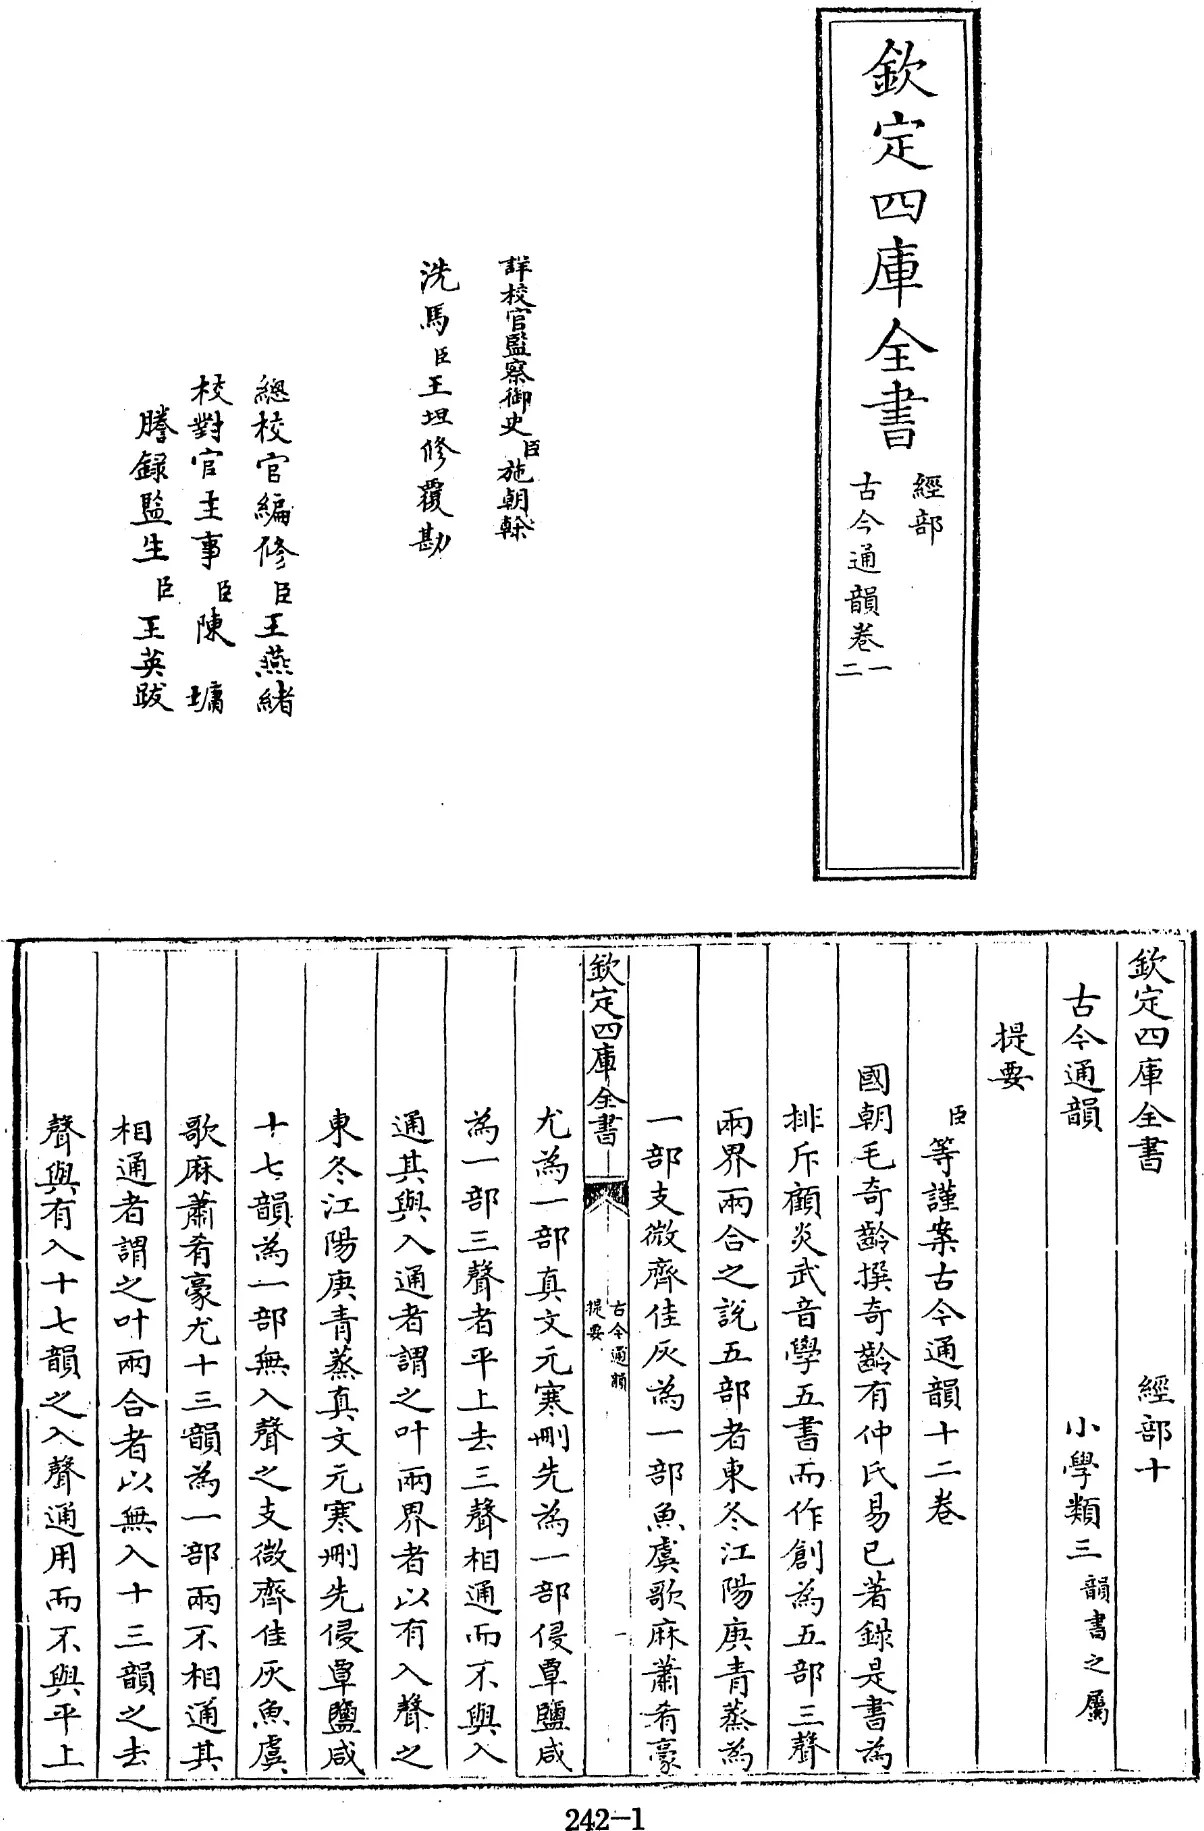 欽定四庫全書
經部
古今通韻卷一
二
詳校官監察御史臣施朝榦
洗馬臣王坦修覆勘
總校官編修臣王燕緒
校對官主事臣陳墉
謄錄監生臣王英跋
欽定四庫全書 經部十
古今通韻 小學類三韻書之屬
提要
臣等謹案古今通韻十二卷
國朝毛奇齡撰奇齡有仲氏易已著錄是書為
排斥顧炎武音學五書而作創為五部三聲
兩界兩合之說五部者東冬江陽庚青蒸為
一部支微齊佳灰為一部魚虞歌麻蕭肴豪
欽定四庫全書 古今通韻
提要 一
尤為一部真文元寒刪先為一部侵覃鹽咸
為一部三聲者平上去三聲相通而不與入
通其與入通者謂之叶兩界者以有入聲之
東冬江陽庚青蒸真文元寒刪先侵覃鹽咸
十七韻為一部無入聲之支微齊佳灰魚虞
歌麻蕭肴豪尤十三韻為一部兩不相通其
相通者謂之叶兩合者以無入十三韻之去
聲與有入十七韻之入聲通用而不與平上
242-1